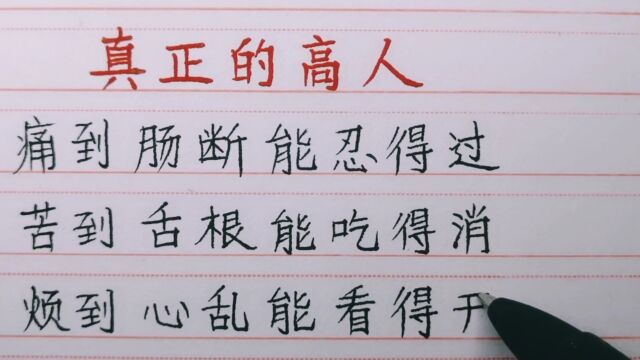 真正的高人
痛到肠断能忍得过
苦到舌根能吃得消
烦到心乱能看得开